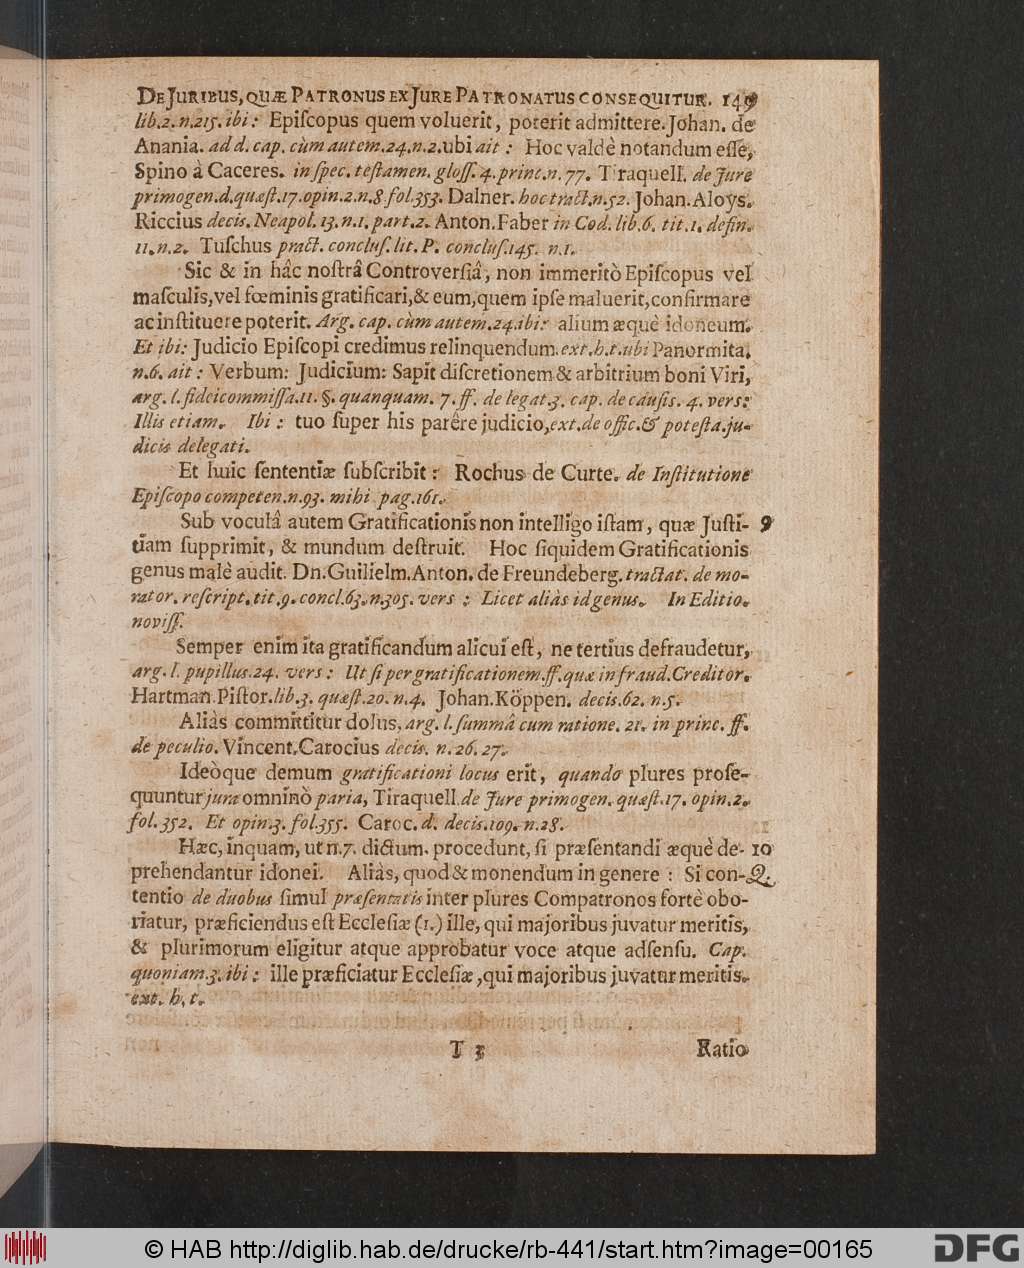 DE JURIBUS, QUÆ PATRONUS EX JURE PATRONATUS CONSEQUITUR. 149
lib.2.n.215.ibi: Epiſcopus quem voluerit, poterit admittere. Johan. de
Anania. ad d. cap. cùm autem.24.n.2.ubi ait: Hoc valdè notandum eſſe,
Spino à Caceres. in ſpec. teſtamen. gloſſ. 4. princ.n. 77. Tiraquell. de Jure
primogen.d.quæſt.17.opin.2.n.8.fol.353. Dalner. hoc tract.n.52. Johan. Aloys.
Riccius decis. Neapol. 13. n.1. part.2. Anton. Faber in Cod. lib.6. tit.1. defin.
11.n.2. Tuſchus pract. concluſ. lit. P. concluſ.145. n.1.
Sic & in hâc noſtrâ Controverſiâ, non immeritò Epiſcopus vel
maſculis, vel fœminis gratificari, & eum, quem ipſe maluerit, confirmare
ac inſtituere poterit. Arg. cap. cùm autem.24.ibi: alium æquè idoneum.
Et ibi: Judicio Epiſcopi credimus relinquendum. ext. h.t. ubi Panormita.
n.6. ait: Verbum: Judicium: Sapit diſcretionem & arbitrium boni Viri,
arg. l. fideicommiſſa.11. §. quanquam. 7. ff. de legat.3. cap. de cauſis. 4. vers:
Illis etiam. Ibi: tuo ſuper his parêre judicio, ext. de offic. & poteſta. ju-
dicis delegati.
Et huic ſententiæ ſubſcribit: Rochus de Curte. de Inſtitutione
Epiſcopo competen.n.93. mihi pag.161.
Sub voculâ autem Gratificationis non intelligo iſtam, quæ Juſti- 9
tiam ſupprimit, & mundum deſtruit. Hoc ſiquidem Gratificationis
genus malè audit. Dn. Guilielm. Anton. de Freundeberg. tractat. de mo-
rator. reſcript. tit.9. concl.63. n.305. vers: Licet aliàs id genus. In Editio.
noviſſ.
Semper enim ita gratificandum alicui eſt, ne tertius defraudetur,
arg. l. pupillus.24. vers: Ut ſi per gratificationem. ff. quæ in fraud. Creditor.
Hartman. Piſtor. lib.3. quæſt.20. n.4. Johan. Köppen. decis.62. n.5.
Aliàs committitur dolus, arg. l. ſummâ cum ratione. 21. in princ. ff.
de peculio. Vincent. Carocius decis. n.26. 27.
Ideòque demum gratificationi locus erit, quando plures proſe-
quuntur jura omninò paria, Tiraquell. de Jure primogen. quæſt.17. opin.2.
fol.352. Et opin.3. fol.355. Caroc. d. decis.109. n.28.
Hæc, inquam, ut n.7. dictum. procedunt, ſi præſentandi æquè de- 10
prehendantur idonei. Aliàs, quod & monendum in genere: Si con- Q.
tentio de duobus ſimul præſentatis inter plures Compatronos fortè obo-
riatur, præficiendus eſt Eccleſiæ (1.) ille, qui majoribus juvatur meritis,
& plurimorum eligitur atque approbatur voce atque adſenſu. Cap.
quoniam.3. ibi: ille præficiatur Eccleſiæ, qui majoribus juvatur meritis.
ext. h. t.
T 3 Ratio
© HAB http://diglib.hab.de/drucke/rb-441/start.htm?image=00165 DFG